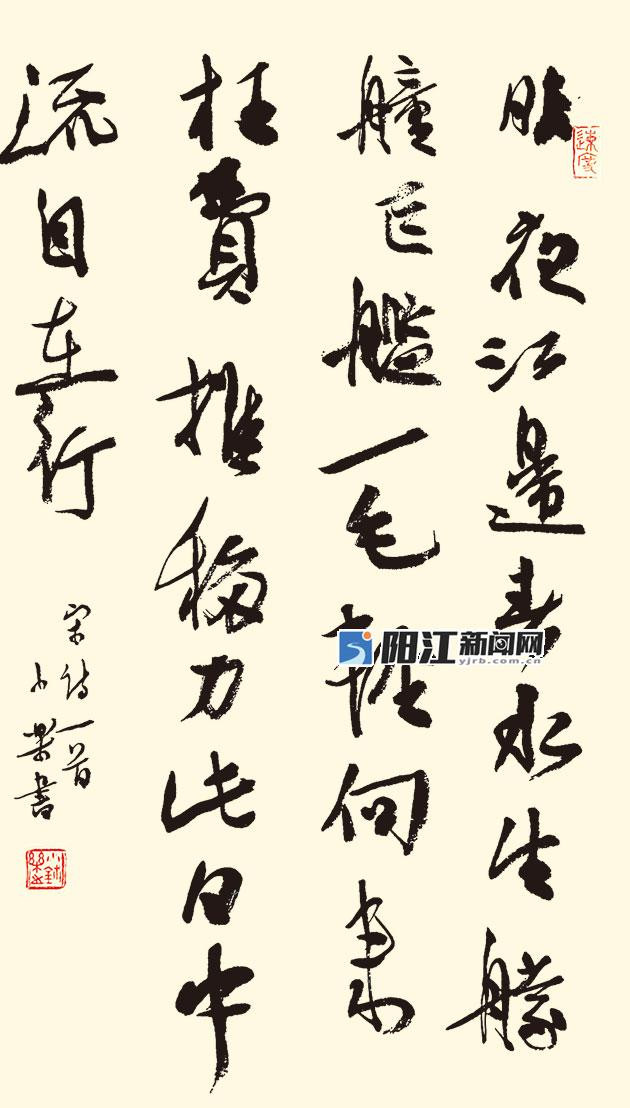 昨夜江邊春水生艨
艟巨艦一毛輕向來
枉費推移力此日中
流自在行
宋詩一首
小樂書
阳江新闻网
yjrb.com.cn